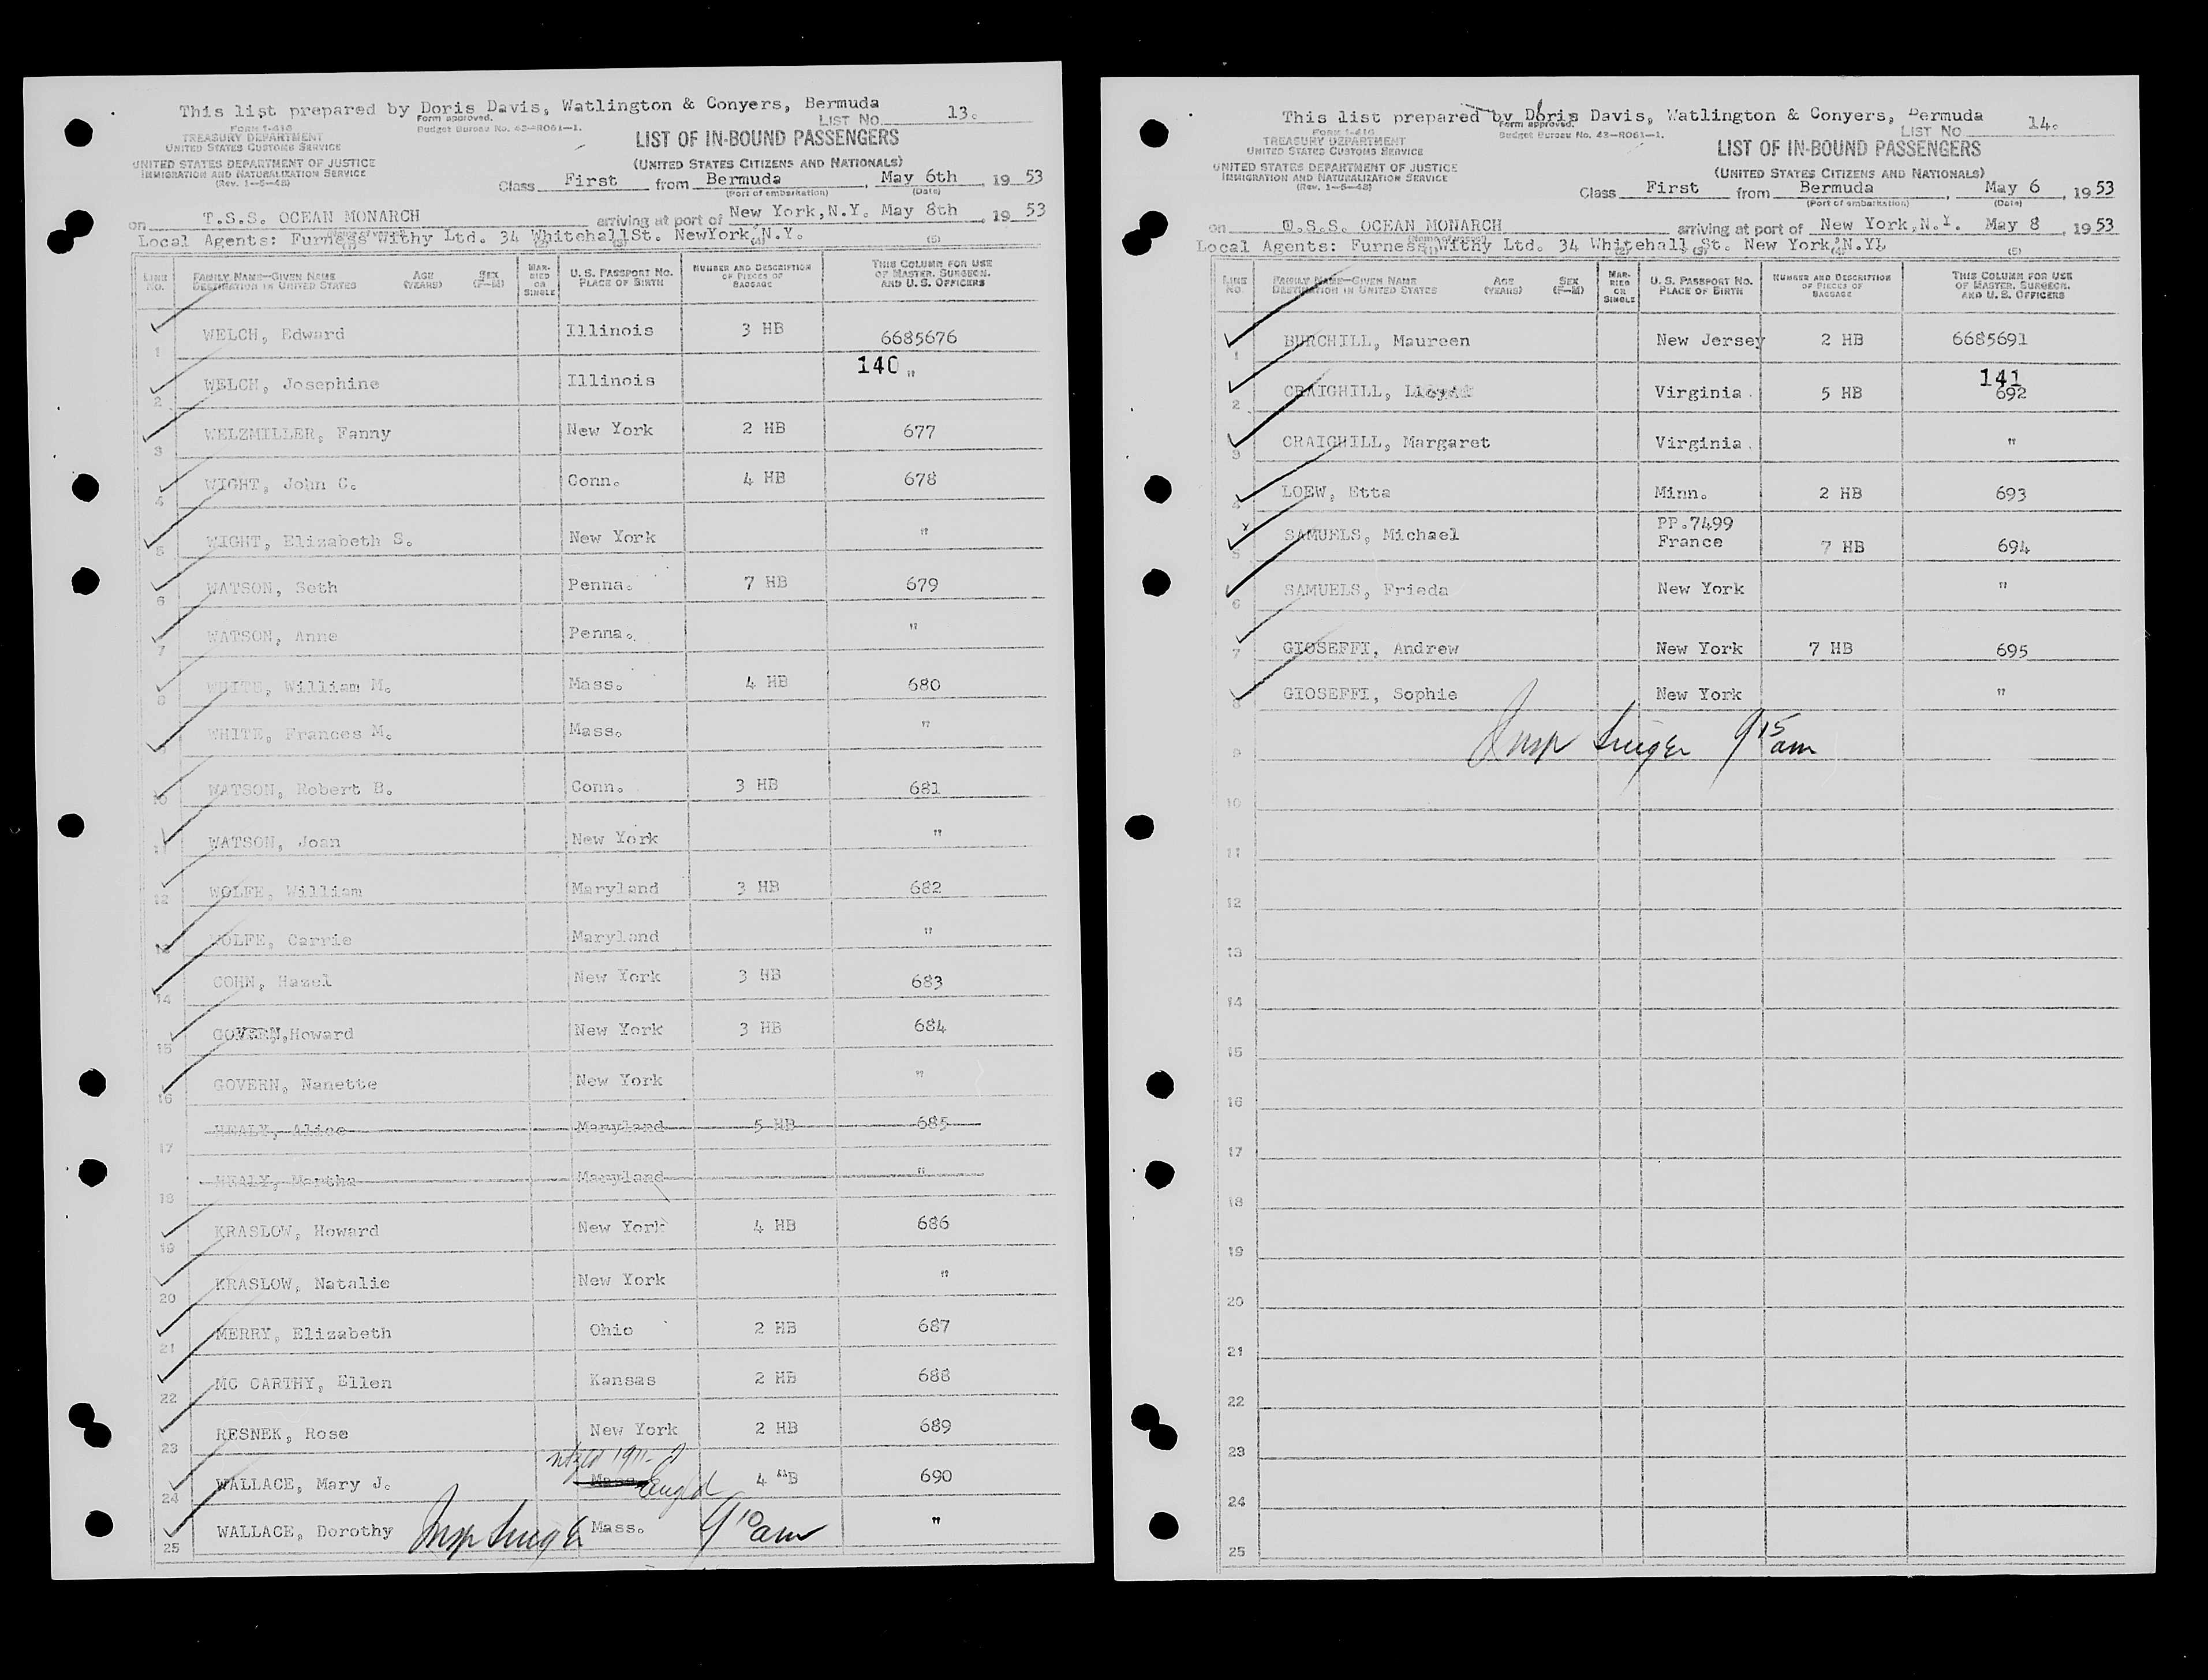 This list prepared by Doris Davis, Watlington & Conyers, Bermuda
Form approved.
Budget Bureau No. 43—R061—1.
LIST NO. 13.
FORM I-418
TREASURY DEPARTMENT
UNITED STATES CUSTOMS SERVICE
UNITED STATES DEPARTMENT OF JUSTICE
IMMIGRATION AND NATURALIZATION SERVICE
(Rev. 1—5—48)
LIST OF IN-BOUND PASSENGERS
(UNITED STATES CITIZENS AND NATIONALS)
Class First from Bermuda, May 6th, 19 53
(Port of embarkation) (Date)
on T.S.S. OCEAN MONARCH arriving at port of New York, N.Y. May 8th, 19 53
(Name of vessel)
Local Agents: Furness Withy Ltd. 34 Whitehall St. NewYork, N.Y.
(1) (2) (3) (4) (5)
LINE NO. FAMILY NAME—GIVEN NAME DESTINATION IN UNITED STATES AGE (YEARS) SEX (F—M) MARRIED OR SINGLE U. S. PASSPORT NO. PLACE OF BIRTH NUMBER AND DESCRIPTION OF PIECES OF BAGGAGE THIS COLUMN FOR USE OF MASTER, SURGEON, AND U. S. OFFICERS
1 WELCH, Edward Illinois 3 HB 6685676
140
2 WELCH, Josephine Illinois "
3 WELZMILLER, Fanny New York 2 HB 677
4 WIGHT, John C. Conn. 4 HB 678
5 WIGHT, Elizabeth S. New York "
6 WATSON, Seth Penna. 7 HB 679
7 WATSON, Anne Penna. "
8 WHITE, William M. Mass. 4 HB 680
9 WHITE, Frances M. Mass. "
10 WATSON, Robert B. Conn. 3 HB 681
11 WATSON, Joan New York "
12 WOLFE, William Maryland 3 HB 682
13 WOLFE, Carrie Maryland "
14 COHN, Hazel New York 3 HB 683
15 GOVERN, Howard New York 3 HB 684
16 GOVERN, Nanette New York "
17 HEALY, Alice Maryland 5 HB 685
18 HEALY, Martha Maryland "
19 KRASLOW, Howard New York 4 HB 686
20 KRASLOW, Natalie New York "
21 MERRY, Elizabeth Ohio 2 HB 687
22 MC CARTHY, Ellen Kansas 2 HB 688
23 RESNEK, Rose New York 2 HB 689
24 WALLACE, Mary J. Mass. Engld 4 HB 690
25 WALLACE, Dorothy Mass. "
Insp Singer 9 10 am
This list prepared by Doris Davis, Watlington & Conyers, Bermuda
Form approved.
Budget Bureau No. 43—R061—1.
LIST NO. 14.
FORM I-418
TREASURY DEPARTMENT
UNITED STATES CUSTOMS SERVICE
UNITED STATES DEPARTMENT OF JUSTICE
IMMIGRATION AND NATURALIZATION SERVICE
(Rev. 1—5—48)
LIST OF IN-BOUND PASSENGERS
(UNITED STATES CITIZENS AND NATIONALS)
Class First from Bermuda, May 6, 19 53
(Port of embarkation) (Date)
on S.S. OCEAN MONARCH arriving at port of New York, N.Y. May 8, 19 53
(Name of vessel)
Local Agents: Furness Withy Ltd. 34 Whitehall St. New York, N.Y.
(1) (2) (3) (4) (5)
LINE NO. FAMILY NAME—GIVEN NAME DESTINATION IN UNITED STATES AGE (YEARS) SEX (F—M) MARRIED OR SINGLE U. S. PASSPORT NO. PLACE OF BIRTH NUMBER AND DESCRIPTION OF PIECES OF BAGGAGE THIS COLUMN FOR USE OF MASTER, SURGEON, AND U. S. OFFICERS
1 BURCHILL, Maureen New Jersey 2 HB 6685691
141
2 CRAIGHILL, Lloyd Virginia 5 HB 692
3 CRAIGHILL, Margaret Virginia "
4 LOEW, Etta Minn. 2 HB 693
PP.7499
5 SAMUELS, Michael France 7 HB 694
6 SAMUELS, Frieda New York "
7 GIOSEFFI, Andrew New York 7 HB 695
8 GIOSEFFI, Sophie New York "
9 Insp Singer 9 15 am
10
11
12
13
14
15
16
17
18
19
20
21
22
23
24
25